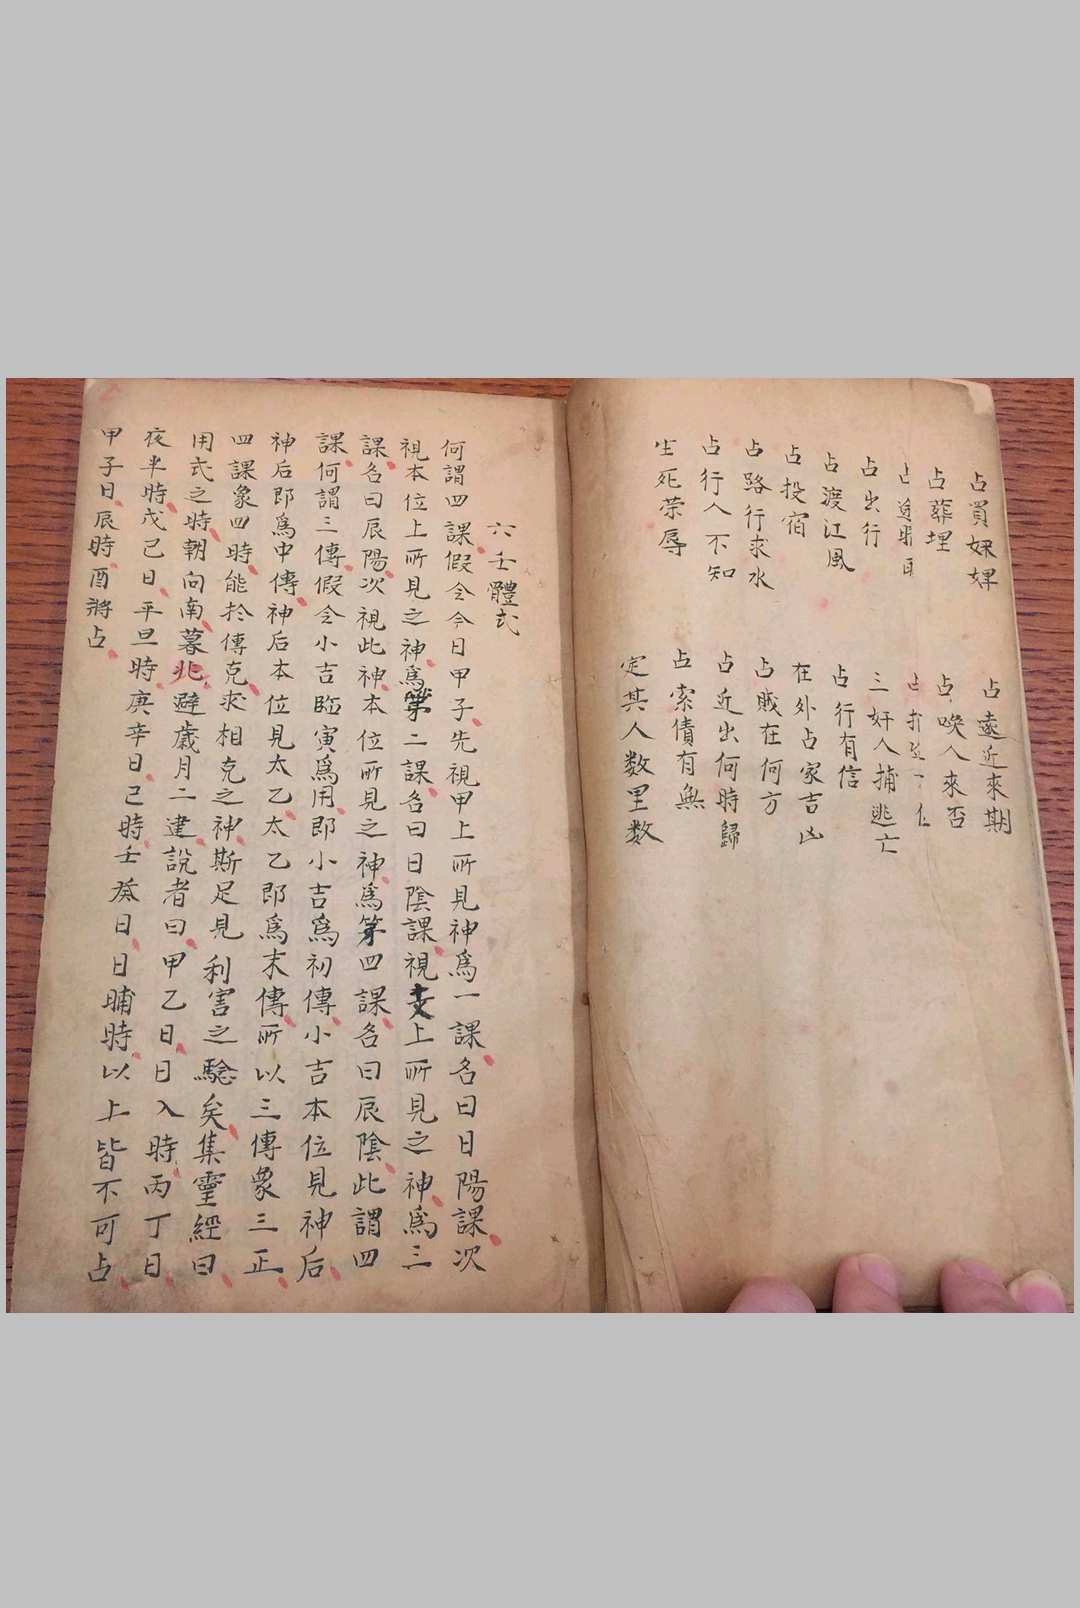 占買奴婢
占遠近來期
占葬埋
占喚人來否
占出行
三奸人捕逃亡
占渡江風
占行有信
占投宿
在外占家吉凶
占路行求水
占賊在何方
占行人不知
占近出何時歸
生死荣辱
占索債有無
定其人数里数
六壬體式
何謂四課假令今日甲子先視甲上所見神爲一課名曰日陽課次
視本位上所見之神爲第二課名曰日陰課視支上所見之神爲三
課名曰辰陽次視此神本位所見之神爲第四課名曰辰陰此謂四
課何謂三傳假令小吉臨寅爲用即小吉爲初傳小吉本位見神后
神后即爲中傳神后本位見太乙太乙即爲末傳所以三傳象三正
四課象四時能於傳克求相克之神斯足見利害之驗矣集靈經曰
用式之時朝向南暮北避歲月二建說者曰甲乙日日入時丙丁日
夜半時戊己日平旦時庚辛日己時壬癸日日晡時以上皆不可占
甲子日辰時酉將占